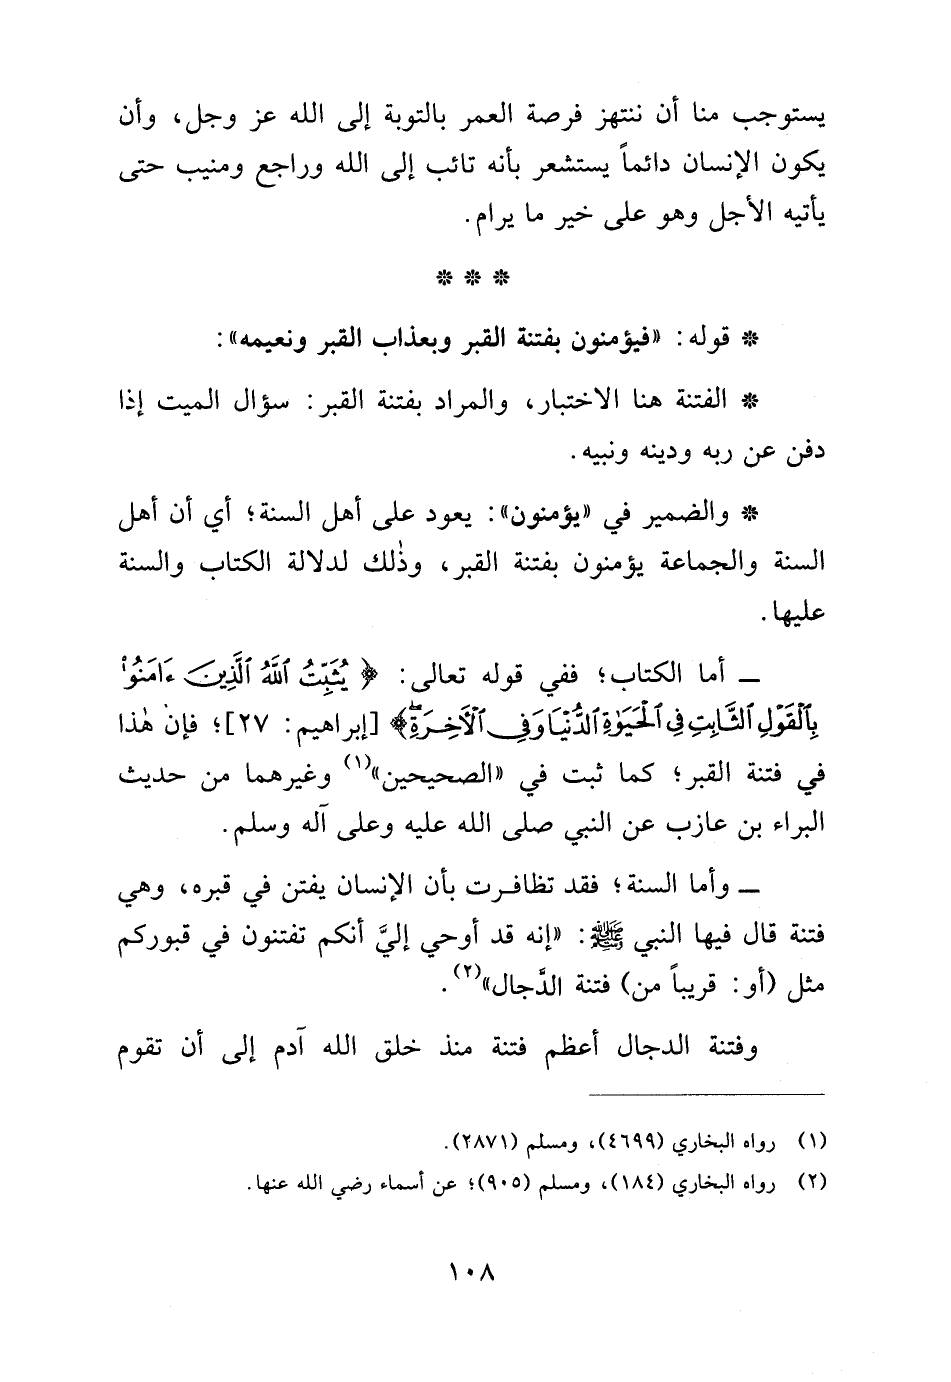 يستوجب منا أن ننتهز فرصة العمر بالتوبة إلى الله عز وجل، وأن
يكون الإنسان دائماً يستشعر بأنه تائب إلى الله وراجع ومنيب حتى
يأتيه الأجل وهو على خير ما يرام.
* * *
* قوله: «فيؤمنون بفتنة القبر وبعذاب القبر ونعيمه»:
* الفتنة هنا الاختبار، والمراد بفتنة القبر: سؤال الميت إذا
دفن عن ربه ودينه ونبيه.
* والضمير في «يؤمنون»: يعود على أهل السنة؛ أي أن أهل
السنة والجماعة يؤمنون بفتنة القبر، وذٰلك لدلالة الكتاب والسنة
عليها.
ـ أما الكتاب؛ ففي قوله تعالى: ﴿يُثَبِّتُ ٱللَّهُ ٱلَّذِينَ ءَامَنُواْ
بِٱلْقَوْلِ ٱلثَّابِتِ فِي ٱلْحَيَوٰةِ ٱلدُّنْيَا وَفِي ٱلْأٓخِرَةِۖ﴾ [إبراهيم: ٢٧]؛ فإن هٰذا
في فتنة القبر؛ كما ثبت في «الصحيحين»(١) وغيرهما من حديث
البراء بن عازب عن النبي صلى الله عليه وعلى آله وسلم.
ـ وأما السنة؛ فقد تظافرت بأن الإنسان يفتن في قبره، وهي
فتنة قال فيها النبي ﷺ: «إنه قد أوحي إليَّ أنكم تفتنون في قبوركم
مثل (أو: قريباً من) فتنة الدَّجال»(٢).
وفتنة الدجال أعظم فتنة منذ خلق الله آدم إلى أن تقوم
(١) رواه البخاري (٤٦٩٩)، ومسلم (٢٨٧١).
(٢) رواه البخاري (١٨٤)، ومسلم (٩٠٥)؛ عن أسماء رضي الله عنها.
١٠٨